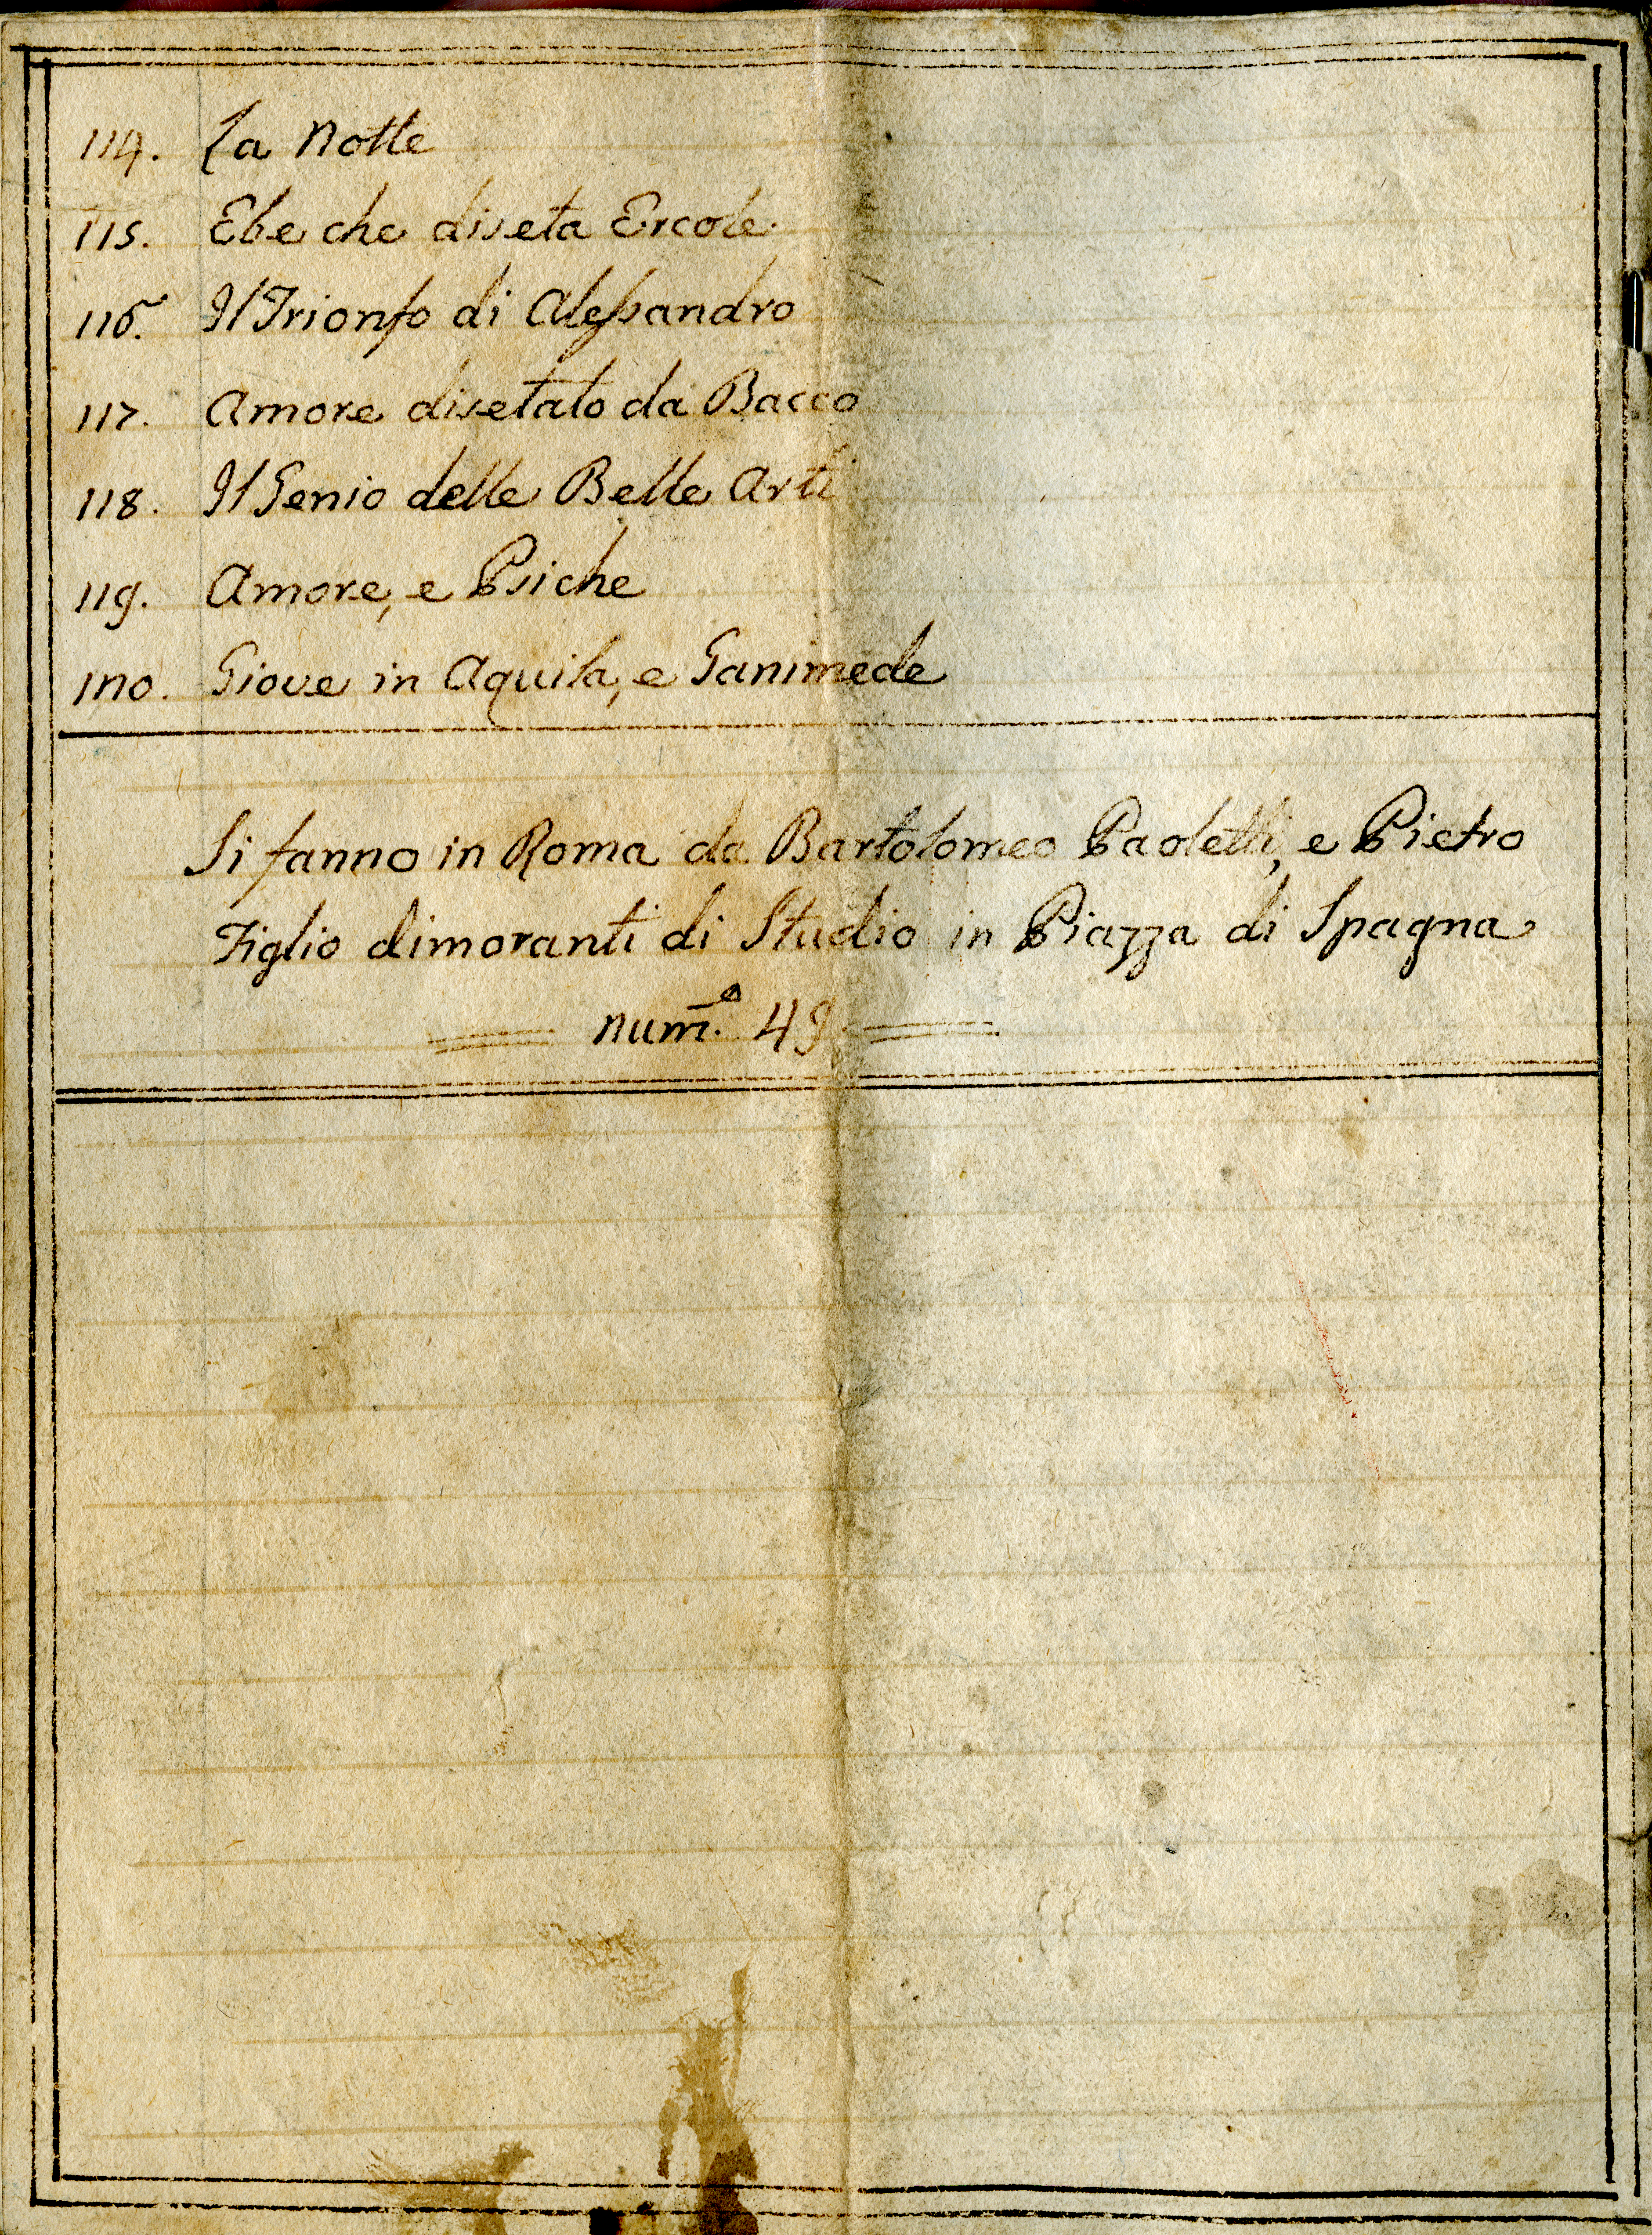 114. La Notte
115. Ebe che diseta Ercole.
116. Il Trionfo di Alessandro
117. Amore disetato da Bacco
118. Il Genio delle Belle Arti
119. Amore, e Psiche
120. Giove in Aquila, e Ganimede
Si fanno in Roma da Bartolomeo Paoletti, e Pietro
Figlio dimoranti di Studio in Piazza di Spagna
num.º 49